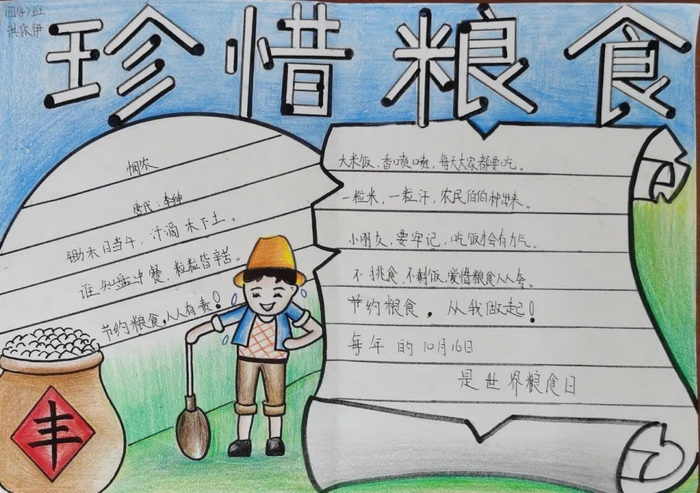 四(4)班
洪依伊
珍惜粮食
悯农
唐代:李绅
锄禾日当午,汗滴禾下土。
谁知盘中餐,粒粒皆辛苦。
节约粮食,人人有责!
丰
大米饭,香喷喷,每天大家都要吃。
一粒米,一粒汗,农民伯伯种出来。
小朋友,要牢记,吃饭才会有力气。
不挑食,不剩饭,爱惜粮食人人夸。
节约粮食,从我做起!
每年的10月16日
是世界粮食日